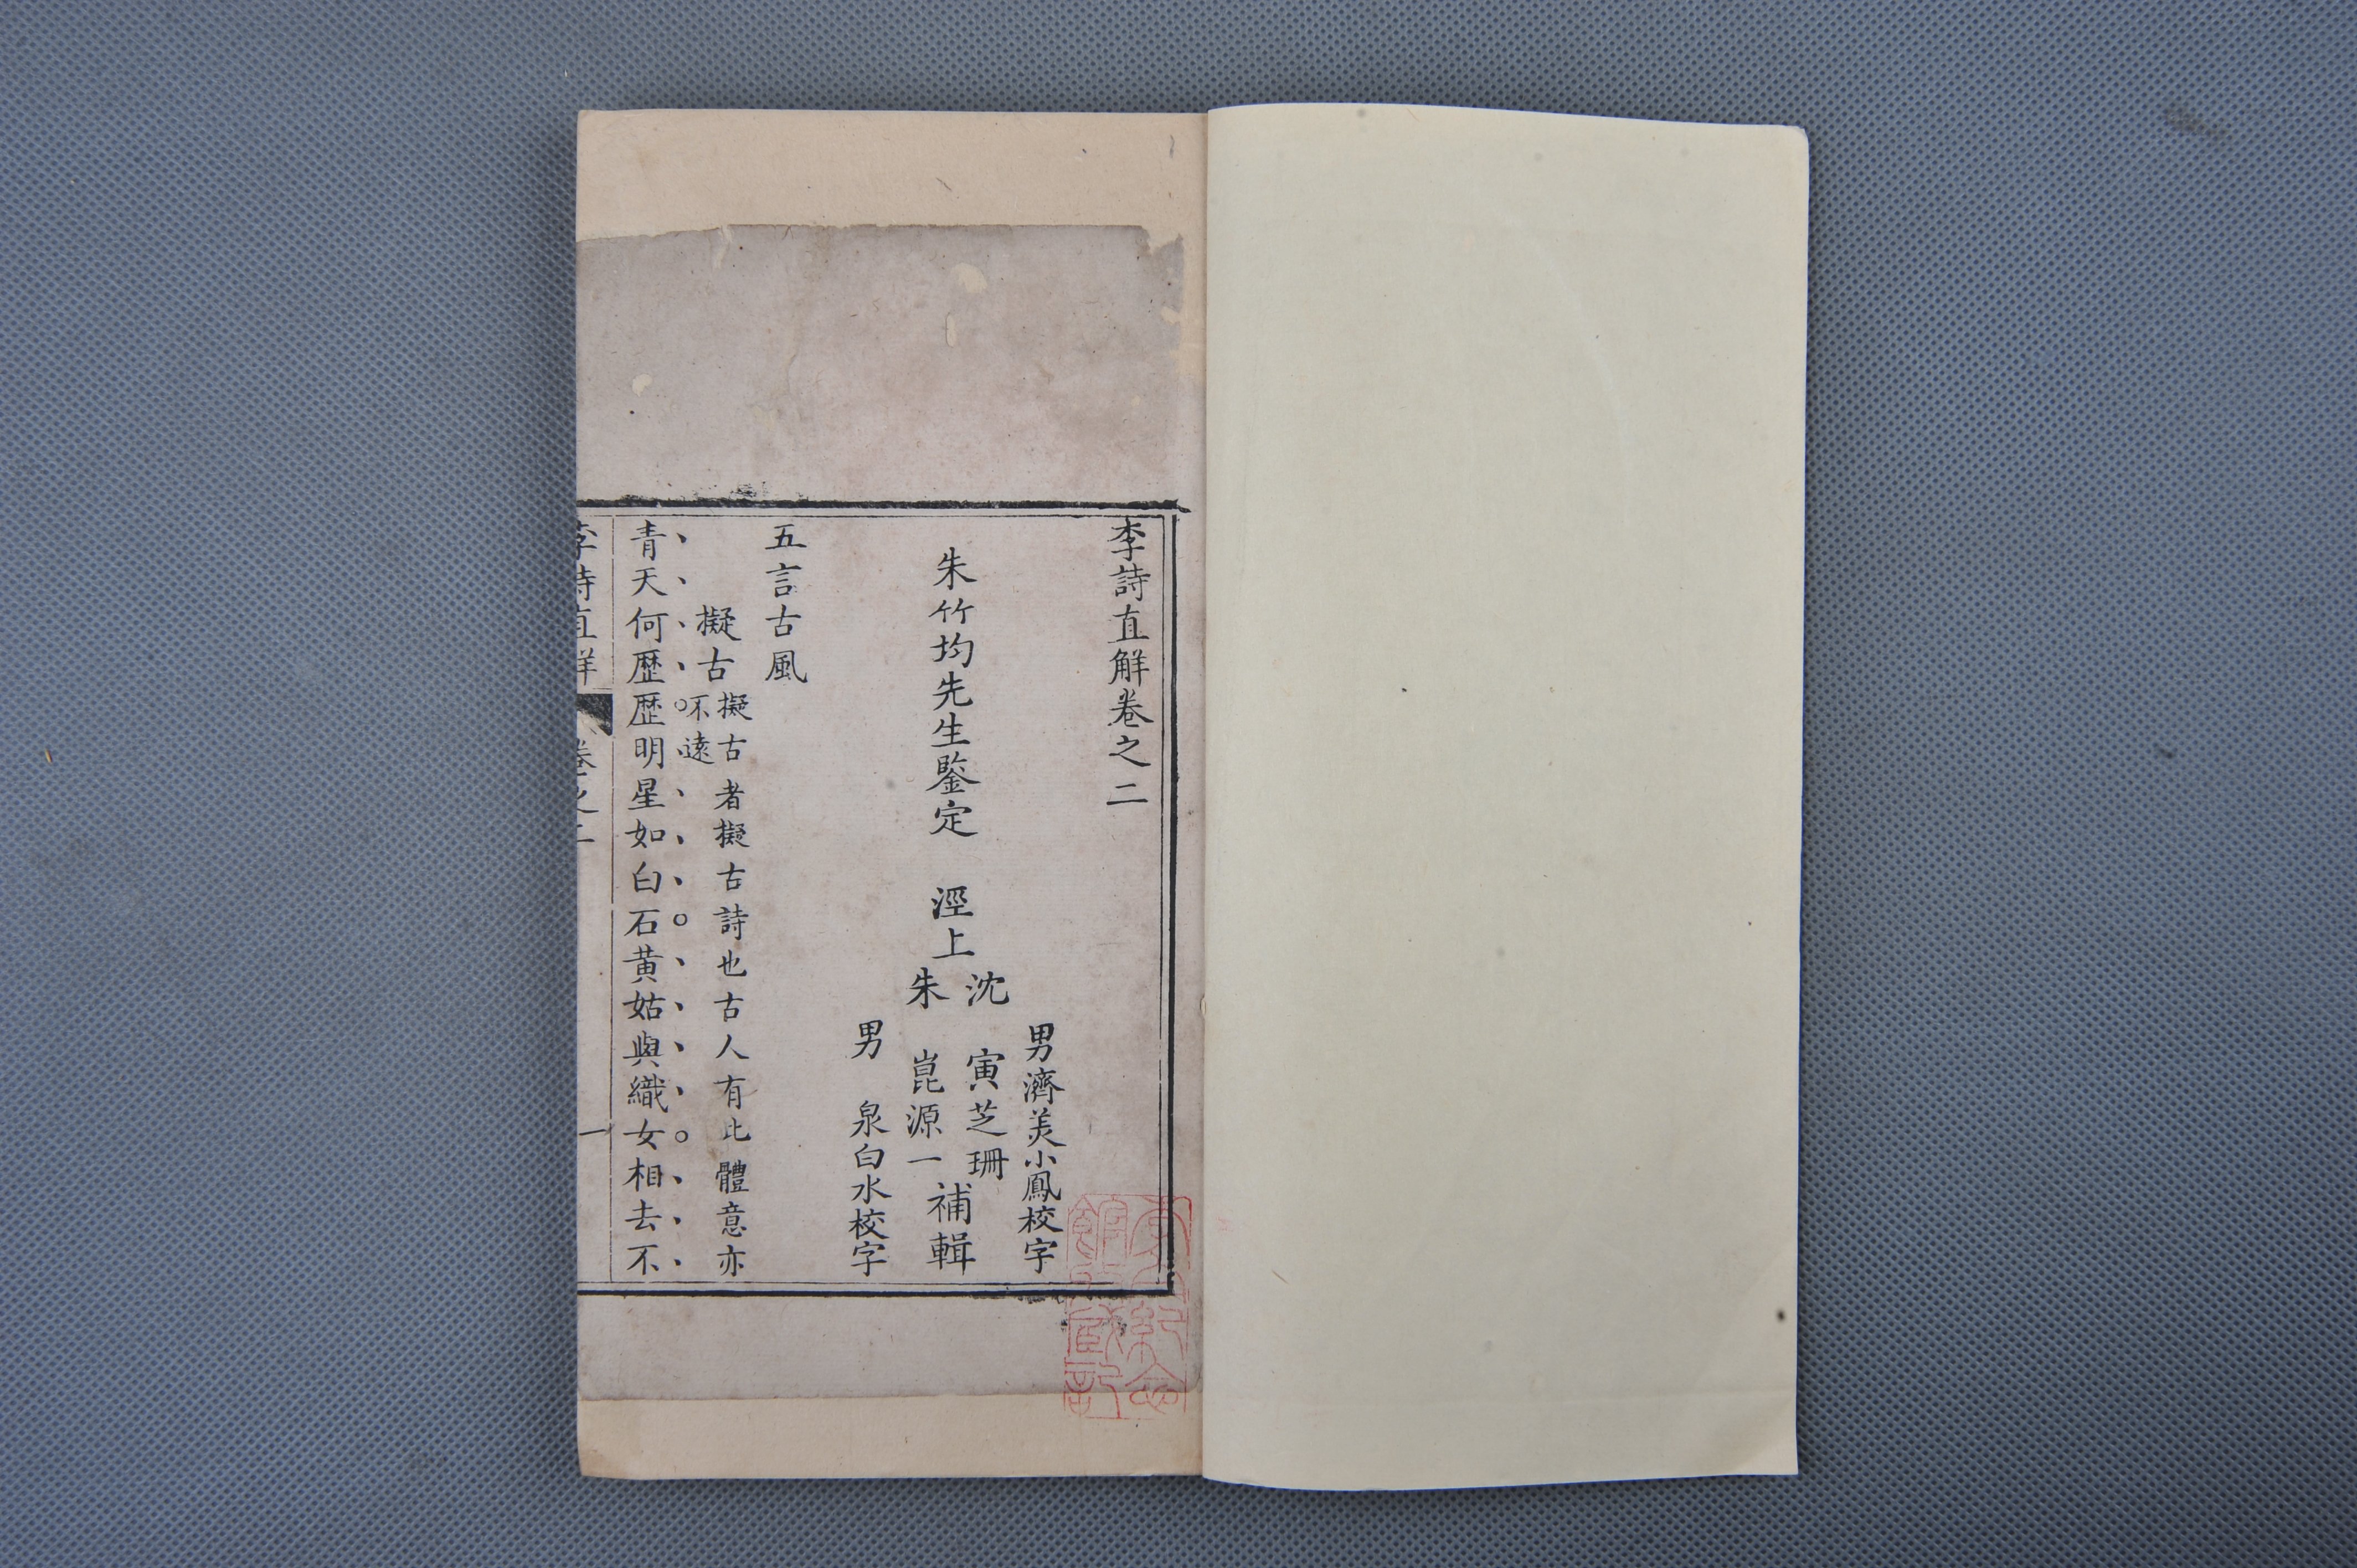 李詩直解卷之二
男濟美小鳳校字
沈寅芝珊
朱竹均先生鑒定 涇上 補輯
朱崑源一
男 泉白水校字
五言古風
擬古
擬古者擬古詩也古人有此體意亦
不遠
青天何歷歷明星如白石黃姑與織女相去不
李詩直解 卷之二 一